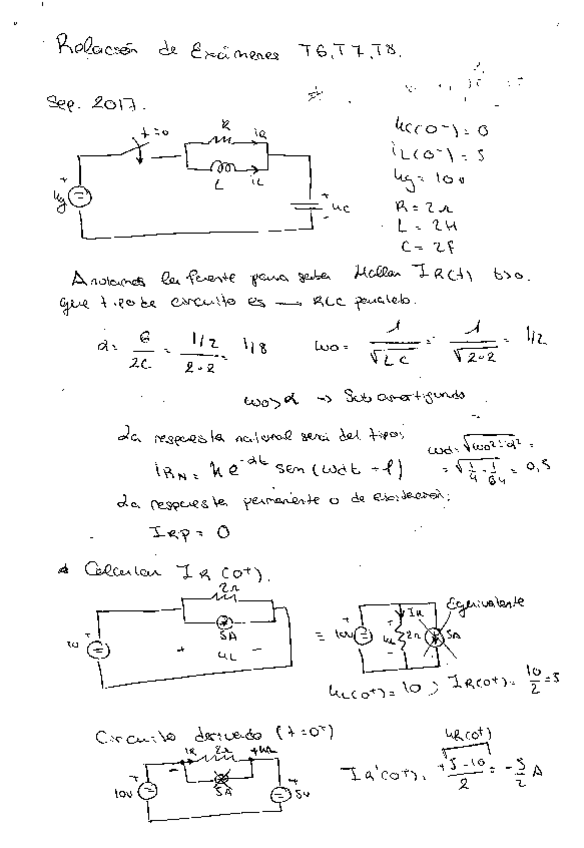 Relación de Exámenes T6,T7,T8.
Sep. 2017.
t=0
R
iR
L
iL
ug
uc
uc(0-)=0
iL(0-)=5
ug=10v
R=2Ω
L=2H
C=2F
Anulamos la fuente para saber Hallar IR(t) t>0.
que tipo de circuito es → RLC paralelo.
α= G/2C = 1/2 / 2·2 = 1/8 ωo= 1/√LC = 1/√2·2 = 1/2
ωo>α → Subamortiguado
La respuesta natural será del tipo;
iRN= K e-αt sen(ωdt + φ)
ωd=√ωo²-α² =
=√1/4 - 1/64 = 0,5
La respuesta permanente o de excitación;
IRP = 0
Calcular IR(0+).
2Ω
5A
10
+ uL -
=
10v
IR
2Ω
5A
Equivalente
uL(0+)=10 ; IR(0+)= 10/2 =5
Circuito derivado (t=0+)
iR 2Ω +uR
10v
5A
5v
uR(0+)
IR'(0+)= +5-10/2 = -5/2 A